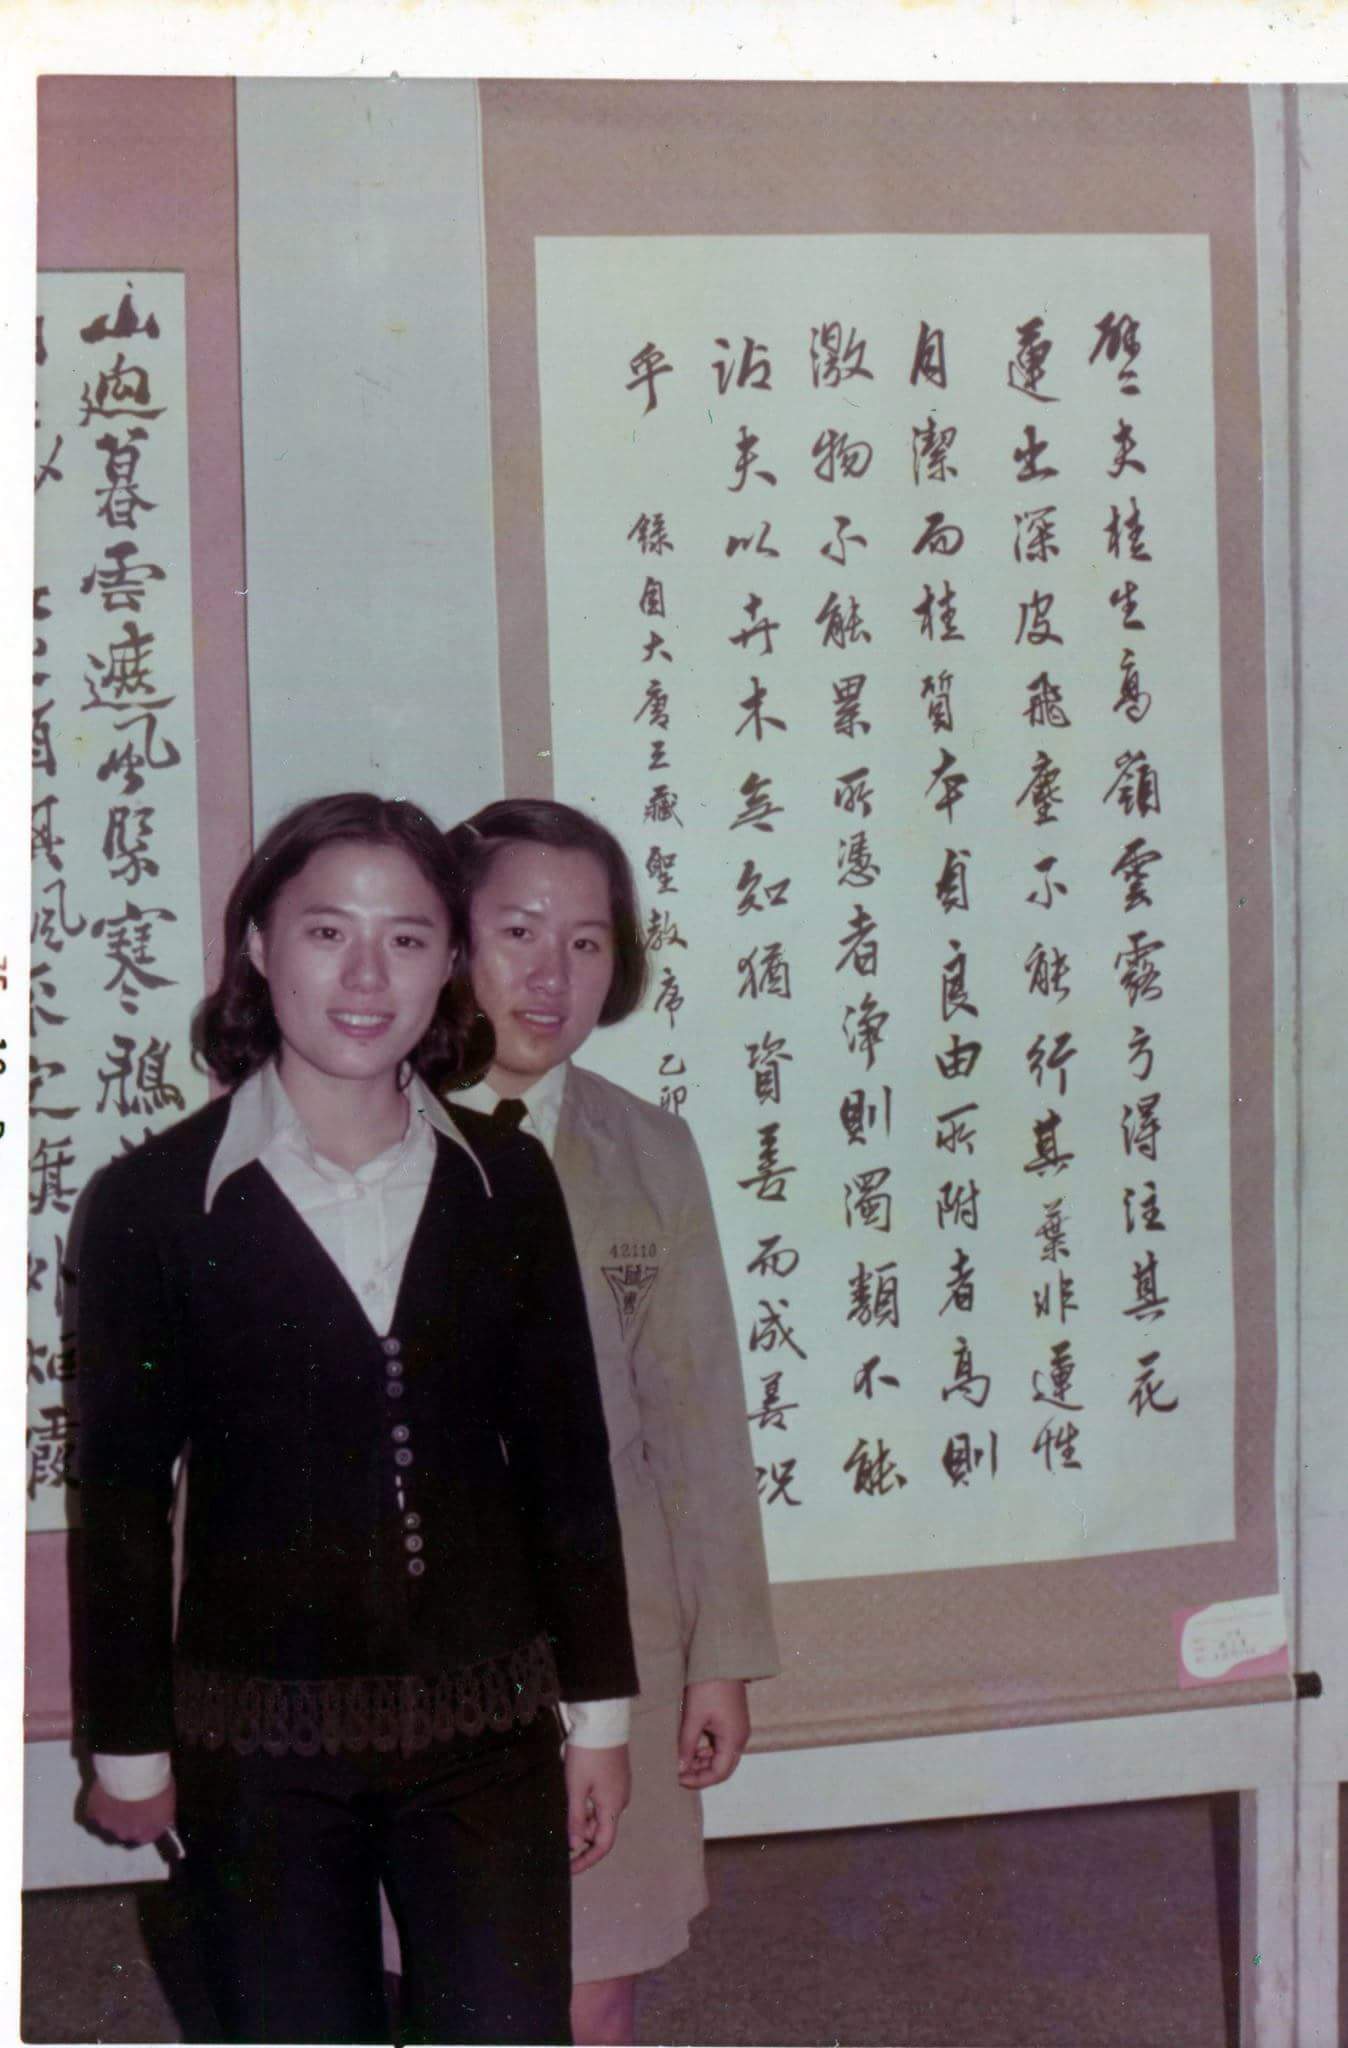 譬夫桂生高嶺雲露方得注其花
蓮出深皮飛塵不能行其葉非蓮性
自潔而桂質本貞良由所附者高則
激物不能累所憑者淨則濁類不能
沾夫以卉木無知猶資善而成善況
乎
錄自大唐三藏聖教序乙卯
山迥暮雲遮風緊寒鴉
霞
42110